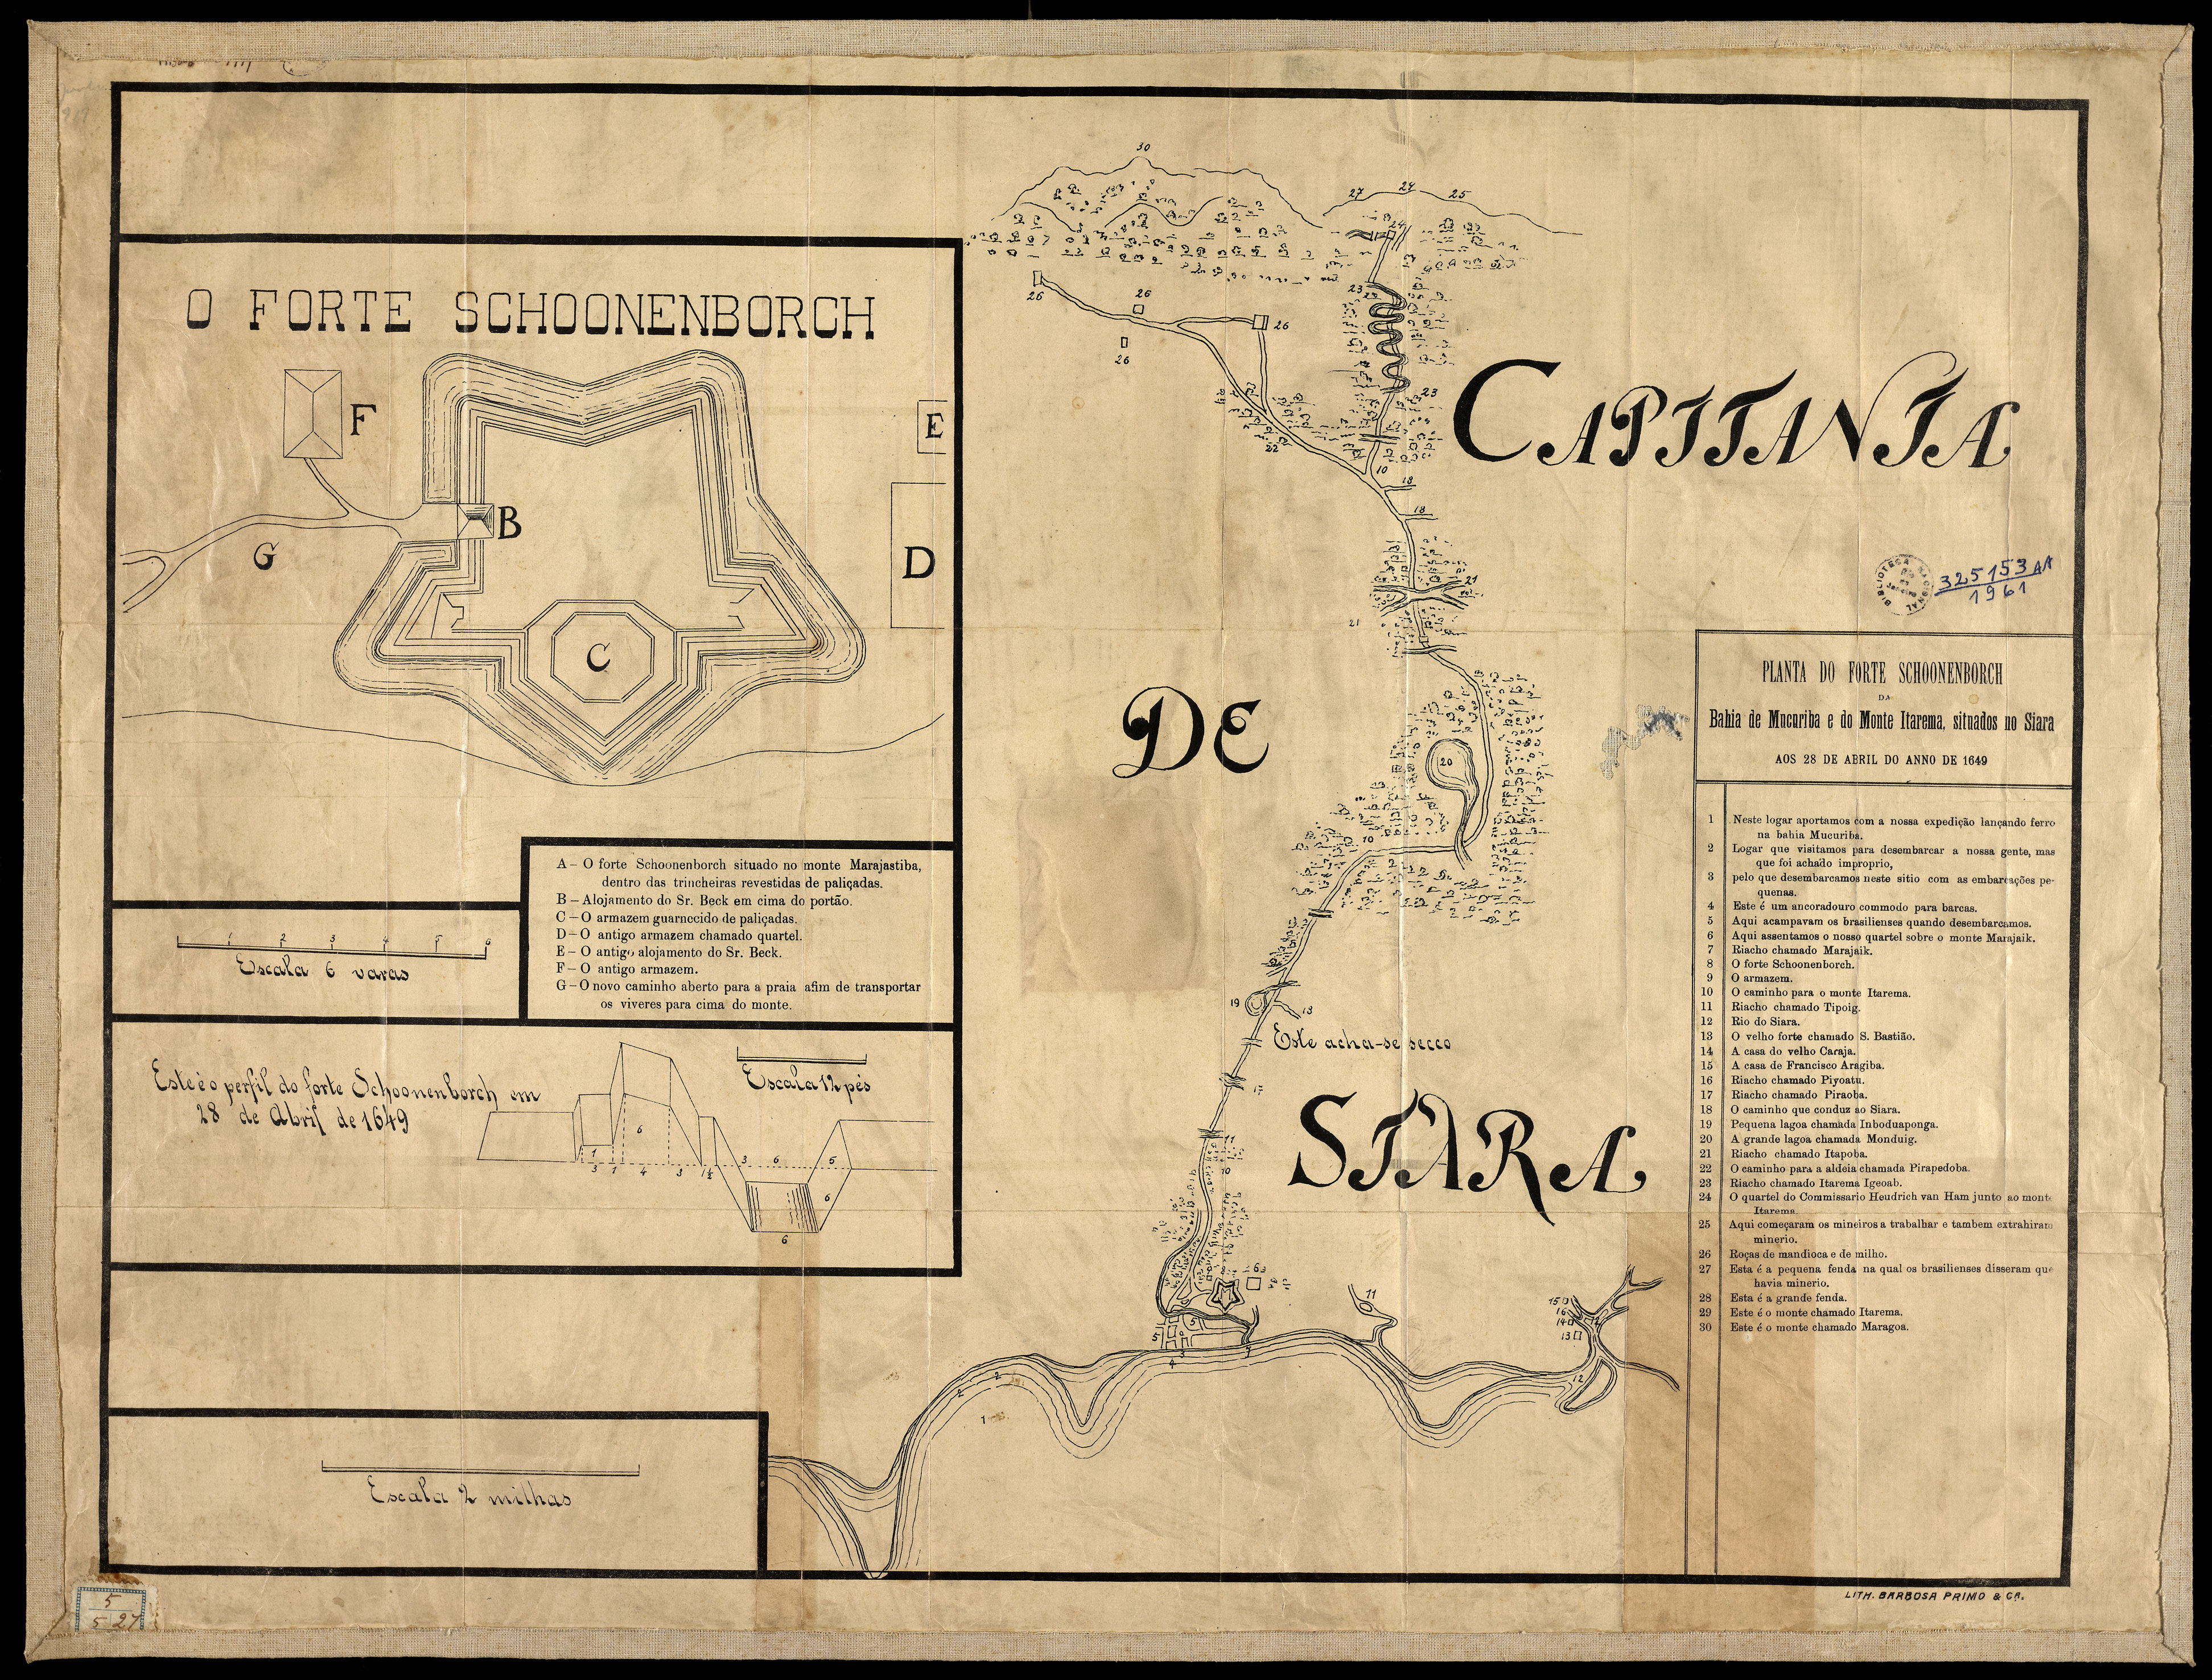 O FORTE SCHOONENBORCH
F
E
B
D
G
C
A – O forte Schoonenborch situado no monte Marajastiba,
dentro das trincheiras revestidas de paliçadas.
B – Alojamento do Sr. Beck em cima do portão.
C – O armazem guarnecido de paliçadas.
D – O antigo armazem chamado quartel.
E – O antigo alojamento do Sr. Beck.
F – O antigo armazem.
G – O novo caminho aberto para a praia afim de transportar
os viveres para cima do monte.
1 2 3 4 5 6
Escala 6 varas
Este é o perfil do forte Schoonenborch em
28 de Abril de 1649
Escala 12 pés
6
1
3 1 4 3 1½ 3 6 5
6
6
Escala 2 milhas
CAPITANIA
DE
SIARA
30
27 24 25
24
26
26
26
26
23
23
22
10
18
18
21
21
20
10
19
18
Este acha-se secco
17
11
10
6
11
15
16
14
13
12
5
5
4
3
7
2
2
1
BIBLIOTECA NACIONAL
325153 AA
1961
PLANTA DO FORTE SCHOONENBORCH
DA
Bahia de Mucuriba e do Monte Itarema, situados no Siara
AOS 28 DE ABRIL DO ANNO DE 1649
1 Neste logar aportamos com a nossa expedição lançando ferro
na bahia Mucuriba.
2 Logar que visitamos para desembarcar a nossa gente, mas
que foi achado improprio,
3 pelo que desembarcamos neste sitio com as embarcações pe-
quenas.
4 Este é um ancoradouro commodo para barcas.
5 Aqui acampavam os brasilienses quando desembarcamos.
6 Aqui assentamos o nosso quartel sobre o monte Marajaik.
7 Riacho chamado Marajaik.
8 O forte Schoonenborch.
9 O armazem.
10 O caminho para o monte Itarema.
11 Riacho chamado Tipoig.
12 Rio do Siara.
13 O velho forte chamado S. Bastião.
14 A casa do velho Caraja.
15 A casa de Francisco Aragiba.
16 Riacho chamado Piyoatu.
17 Riacho chamado Piraoba.
18 O caminho que conduz ao Siara.
19 Pequena lagoa chamada Inboduaponga.
20 A grande lagoa chamada Monduig.
21 Riacho chamado Itapoba.
22 O caminho para a aldeia chamada Pirapedoba.
23 Riacho chamado Itarema Igeoab.
24 O quartel do Commissario Heudrich van Ham junto ao monte
Itarema.
25 Aqui começaram os mineiros a trabalhar e tambem extrahiram
minerio.
26 Roças de mandioca e de milho.
27 Esta é a pequena fenda na qual os brasilienses disseram que
havia minerio.
28 Esta é a grande fenda.
29 Este é o monte chamado Itarema.
30 Este é o monte chamado Maragoa.
LITH. BARBOSA PRIMO & CA.
5
5 27